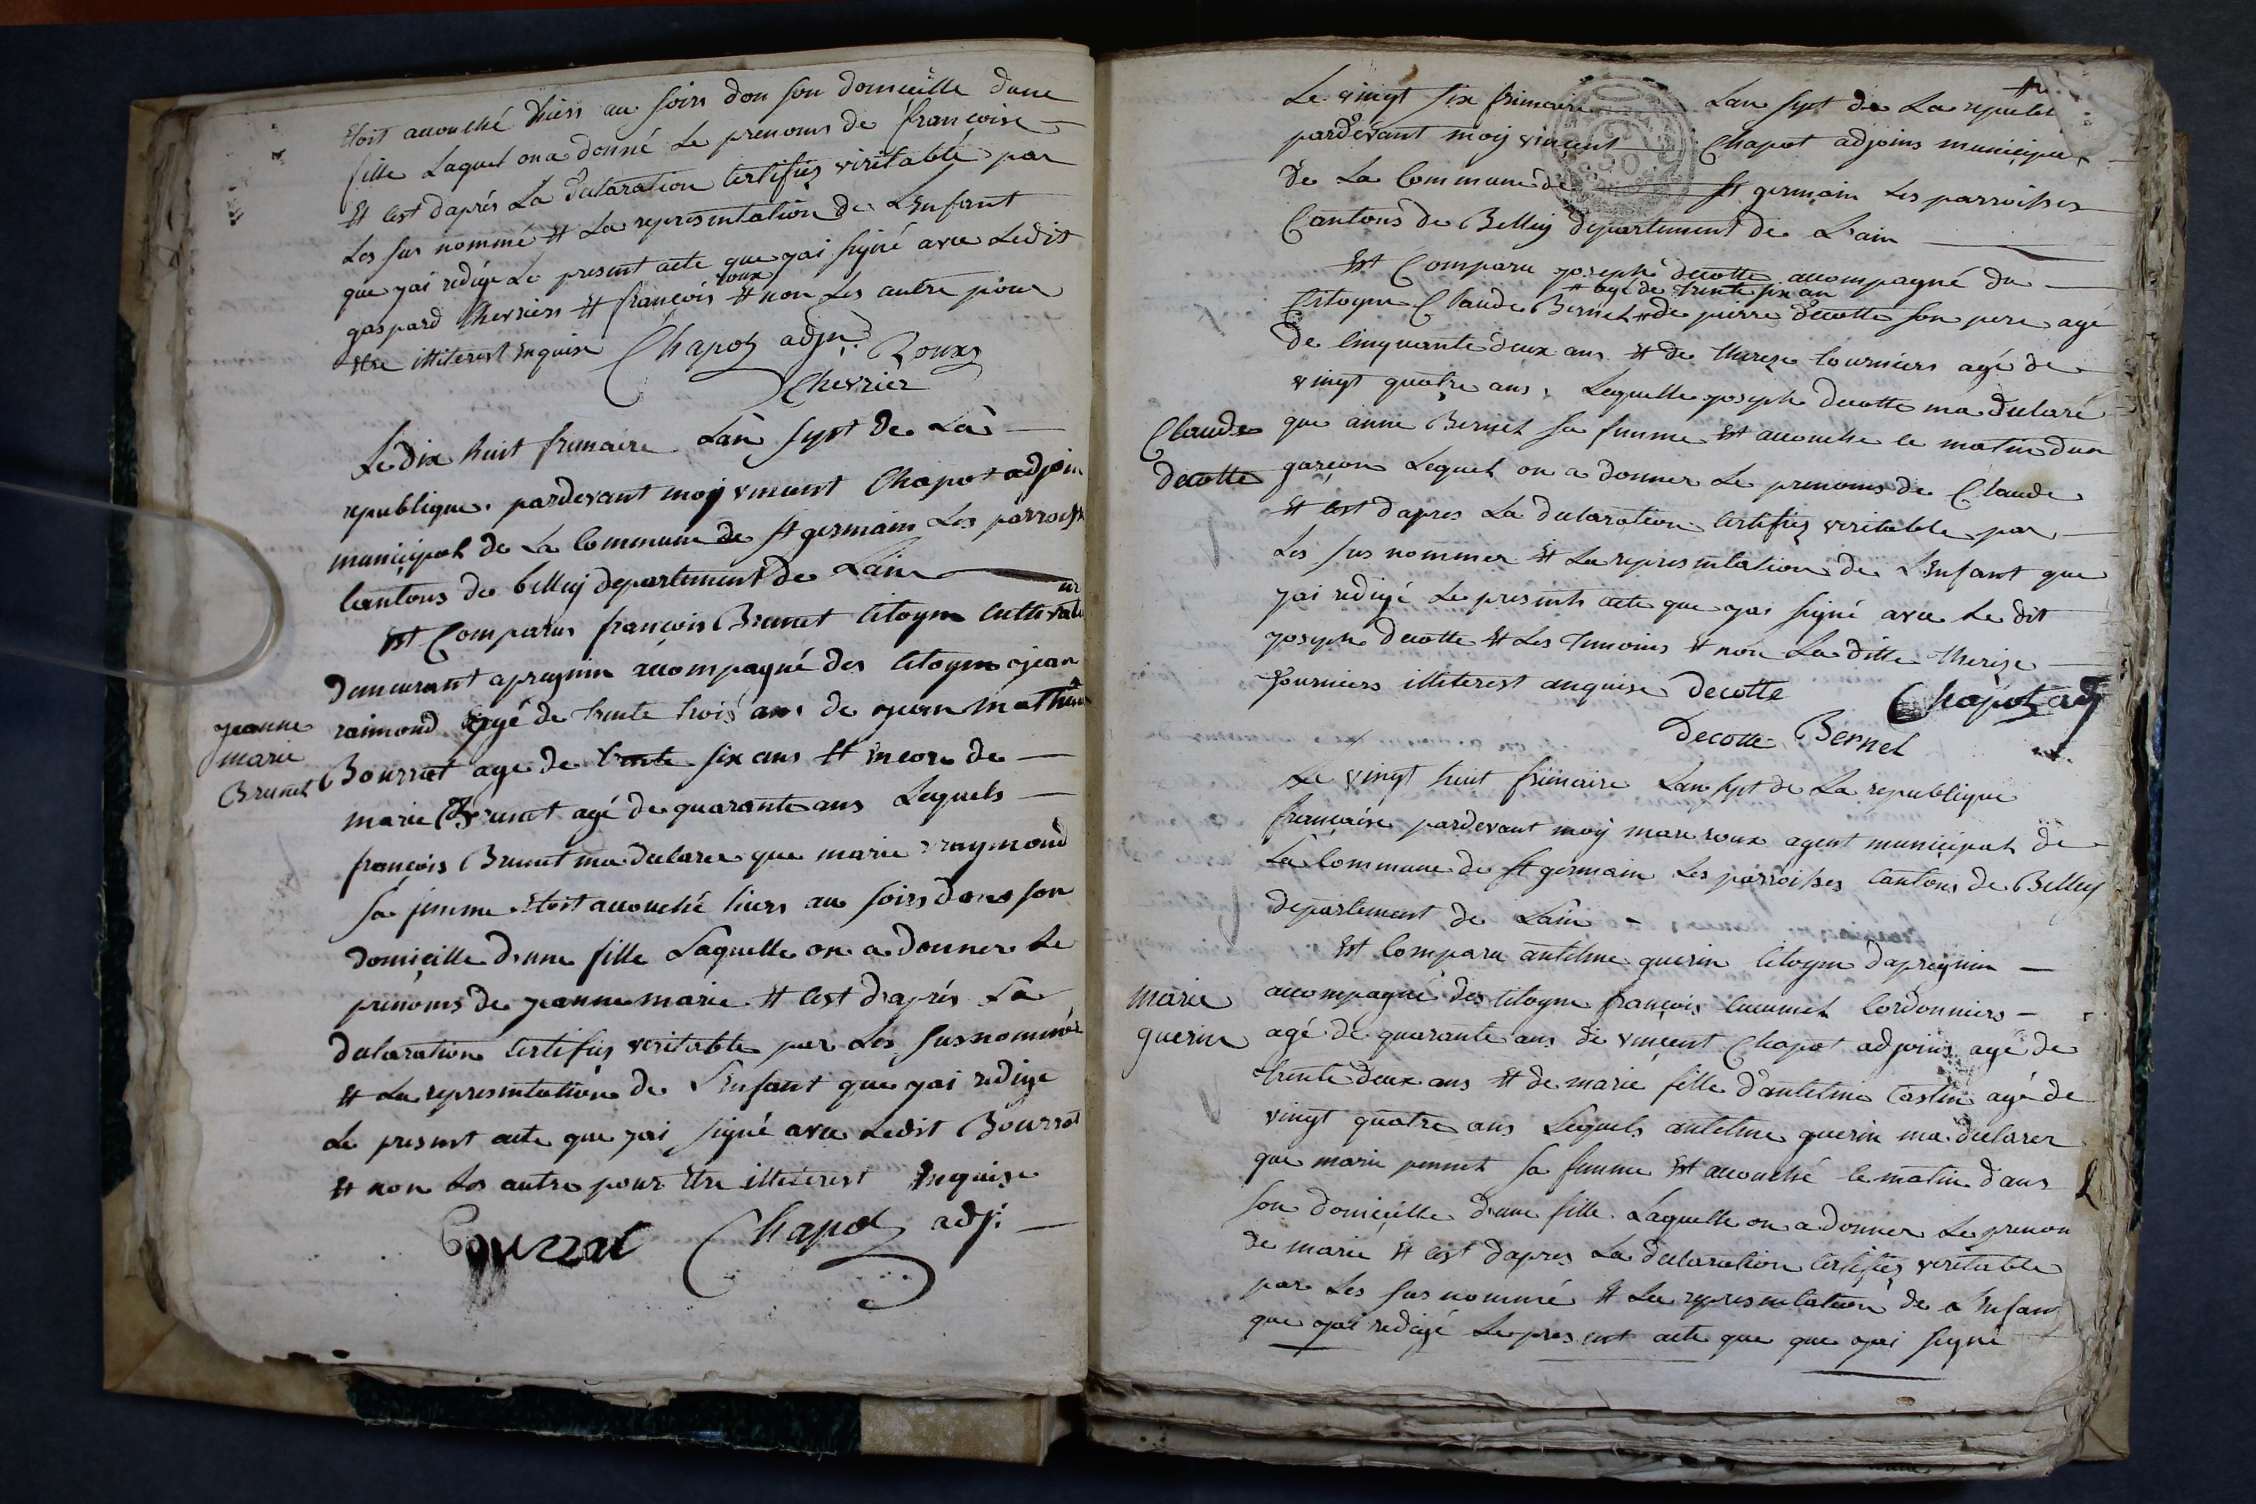 Etoit accouché hiers au soirs dan son domicille dune
fille Laquel on a donné Le prenoms de françoise
Et cest daprés La declaration certifiez viritable par
Les sus nommé Et La representation de L'Enfant
que j'ai redigé Le present acte que j'ai signé avec Ledit
roux
gaspard Chevriers Et françois Et non Les autre pour
Etre illiterest Enquise Chapot adjn: Roux
Chevrier
Le dix huit frimaire Lan sept de La
republique pardevant moy vincent Chapot adjoin
municipal de La Commune de st germain Les parroisse
Cantons de belley departement de Lain
Est Comparus françois Brunet Citoyen Cultivateur
demeurant a pregnin accompagné des Citoyen jean
raimond agé de trente trois ans de jean Mathieu
jeanne
marie
Brunet
Bourrat age de trente six ans Et Encore de
marie Brunet agé de quarante ans Lequels
françois Brunet ma declarer que marie raymond
sa femme Etoit accouché hiers au soirs dans son
domicille d'une fille Laquelle on a donner Le
prénoms de jeanne marie Et cest d'aprés La
declaration certifiez veritable par Les susnommée
Et La representation de L'Enfant que j'ai redige
Le present acte que j'ai signé avec Ledit Bourrat
Et non Les autre pour Etre illiterest Enquise
Bourrat Chapot adj:
Le vingt six frimaire Lan sept de La republi
pardevant moy vincent Chapot adjoins municipal
de La Commune de st germain Les parroisses
Cantons de Belley departement de L'ain
Est Comparu joseph decotte accompagné du
Et agé de trente six an
Citoyen Claude Bernet Et de pierre decotte son pere agé
de cinquante deux ans Et de thereze fourniers agé de
vingt quatre ans, Lequelle joseph decotte ma declaré
Claude
decotte
que anne Bernet sa femme Est accouche ce matin d'un
garçon Lequel on a donner Le prenoms de Claude
Et cest dapres La declaration certifiez veritable par
Les sus nommer Et La representation de L'Enfant que
j'ai redigé Le presents acte que j'ai signé avec Le dit
joseph decotte Et Les temoins Et non La ditte therise
fourniers illiterest anquise Decotte Chapot adj
Decotte Bernet
Le vingt huit frimaire Lan sept de La republique
françaises pardevant moy marc roux agent municipal de
La Commune de st germain Les parroisses Cantons de Belley
departement de Lain
Est Comparu antelme guerin Citoyen da pregnin
marie
guerin
accompagné des Citoyen françois Cordonniers
agé de quarante ans de vincent Chapot adjoins agé de
trente deux ans Et de marie fille d'antelme Castin agé de
vingt quatre ans Lequels antelme guerin ma declarer
que marie pennet sa femme Est accouché ce matin dans
son domicille d'une fille Laquelle on a donner Le prenon
de marie Et cest dapres La declaration certifiez veritable
par Les sus nommé Et La representation de L'Enfan
que j'ai redigé Le present acte que que j'ai signe